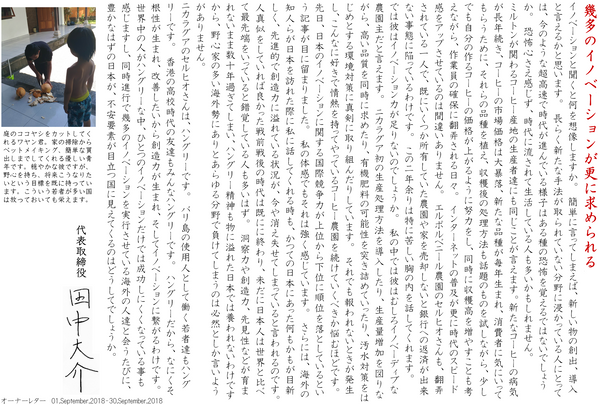 幾多のイノベーションが更に求められる
イノベーションと聞くと何を想像しますか。簡単に言ってしまえば、新しい物の創出、導入
と言えるかと思います。長らく新たな手法が取られていない分野に浸かっている人にとって
は、今のような超高速で時代が進んでいく様子はある種の恐怖を覚えるのではないでしょう
か。恐怖心さえ感じず、時代に流されて生活している人も多いかもしれません。
ミルトンが関わるコーヒー産地の生産者達にも同じことが言えます。新たなコーヒーの病気
が長年続き、コーヒーの市場価格は大暴落、新たな品種が毎年生まれ、消費者に気にいって
もらうために、それらの品種を植え、収穫後の処理方法も話題のものを試しながら、少し
でも自分の作るコーヒーの価格が上がるように努力をし、同時に収穫高を増やすことも考
えながら、作業員の確保に翻弄される日々。インターネットの普及が更に時代のスピード
感をアップさせているのは間違いありません。エルポルベニール農園のセルヒオさんも、翻弄
されている一人で、既にいくつか所有していた農園や家を売却しないと銀行への返済が出来
ない事態に陥っているわけです。この二年余りは特に苦しい胸の内を話してくれます。
では彼はイノベーション力が足りないのでしょうか。私の中では彼はむしろイノベーティブな
農園主だと言えます。ニカラグア初の生産処理方法を導入したり、生産量増加を図りな
がら、高い品質を同時に求めたり、有機肥料の可能性を突き詰めていったり、汚水対策をは
じめとする環境対策に真剣に取り組んだりしています。それでも報われないときが発生
し、こんなに好きで情熱を持ってやっているコーヒー農園を続けていくべきか悩むほどです。
先日、日本のイノベーションに関する国際競争力が上位から下位に順位を落としているとい
う記事が目に留まりました。私の体感でもそれは強く感じています。さらには、海外の
知人らが日本を訪れた際に私に話してくれる時も、かつての日本にあった何もかもが目新
しく、先進的で創造力に溢れている状況が、今や消え失せてしまっていると言われるのです。
人真似をしていれば良かった戦前戦後の時代は既にに終わり、未だに日本人は世界と比べ
て最先端をいっていると錯覚している人も多いはず。洞察力や創造力、先見性などが育ま
れないまま数十年過ぎてしまい、ハングリー精神も物に溢れた日本では養われないわけです
から、野心家の多い海外勢にありとあらゆる分野で負けてしまうのは必然としか言いよう
がありません。
ニカラグアのセルヒオさんは、ハングリーです。バリ島の使用人として働く若者達もハング
リーです。香港の高校時代の友達もみんなハングリーです。ハングリーだから、なにくそ
根性が生まれ、改善したいから創造力が生まれ、そしてイノベーションに繋がるわけです。
世界中の人がハングリーな中、ひとつのイノベーションだけでは成功しにくくなっている事も
感じますし、同時進行で幾多のイノベーションを実行させている海外の人達と会うたびに、
豊かなはずの日本が、不安要素が目立つ国に見えてくるのはどうしてでしょうか。
庭のココヤシをカットしてく
れるワヤン君。家の掃除から
ペットメイキング、簡単な買
出しまでしてくれる優しい青
年です。穏やかな彼ですが、
野心を持ち、将来こうなりた
いという目標を既に持ってい
ます。こういう若者が多い国
は放っておいても栄えます。
代表取締役
田中大介
オーナーレター 01.September.2018-30.September.2018